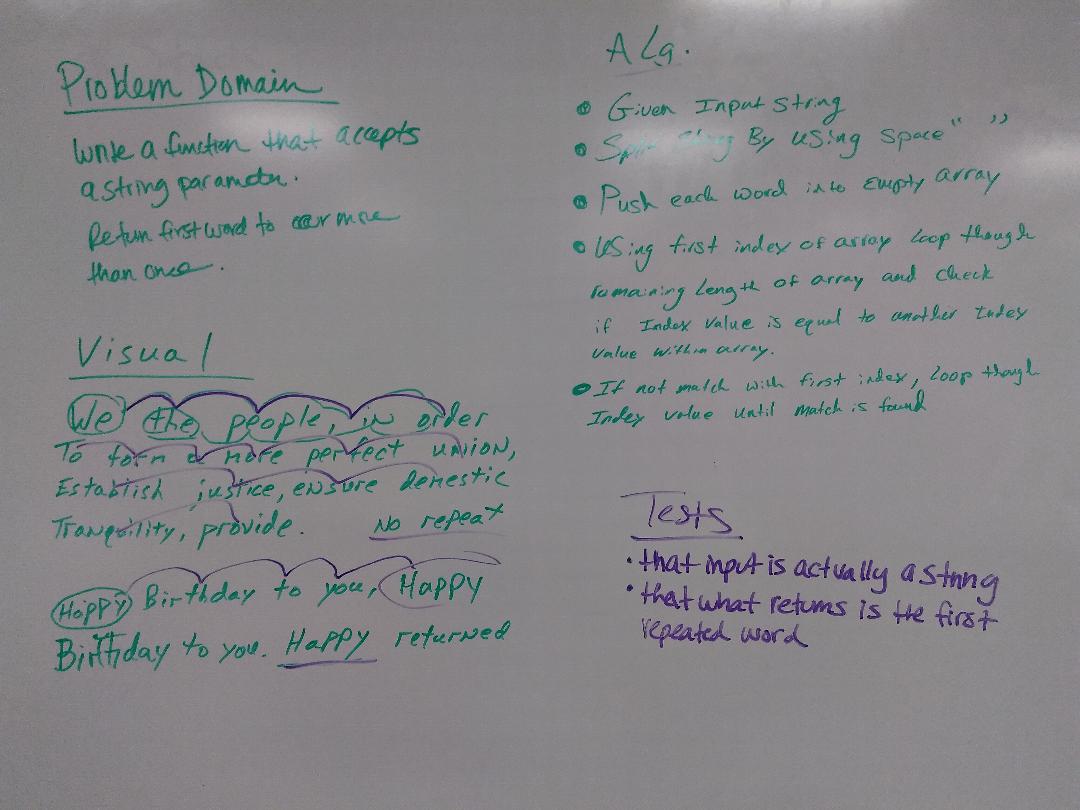 Problem Domain
Write a function that accepts
a string parameter.
Return first word to occur more
than once.
Visual
We the people, in order
To form a more perfect union,
Establish justice, ensure domestic
Tranquility, provide. No repeat
Happy Birthday to you, Happy
Birthday to you. Happy returned
Alg.
• Given Input String
• Split String By Using Space " "
• Push each word into empty array
• Using first index of array loop though
remaining length of array and check
if Index value is equal to another Index
value within array.
• If not match with first index, loop though
Index value until match is found
Tests
• that input is actually a string
• that what returns is the first
repeated word